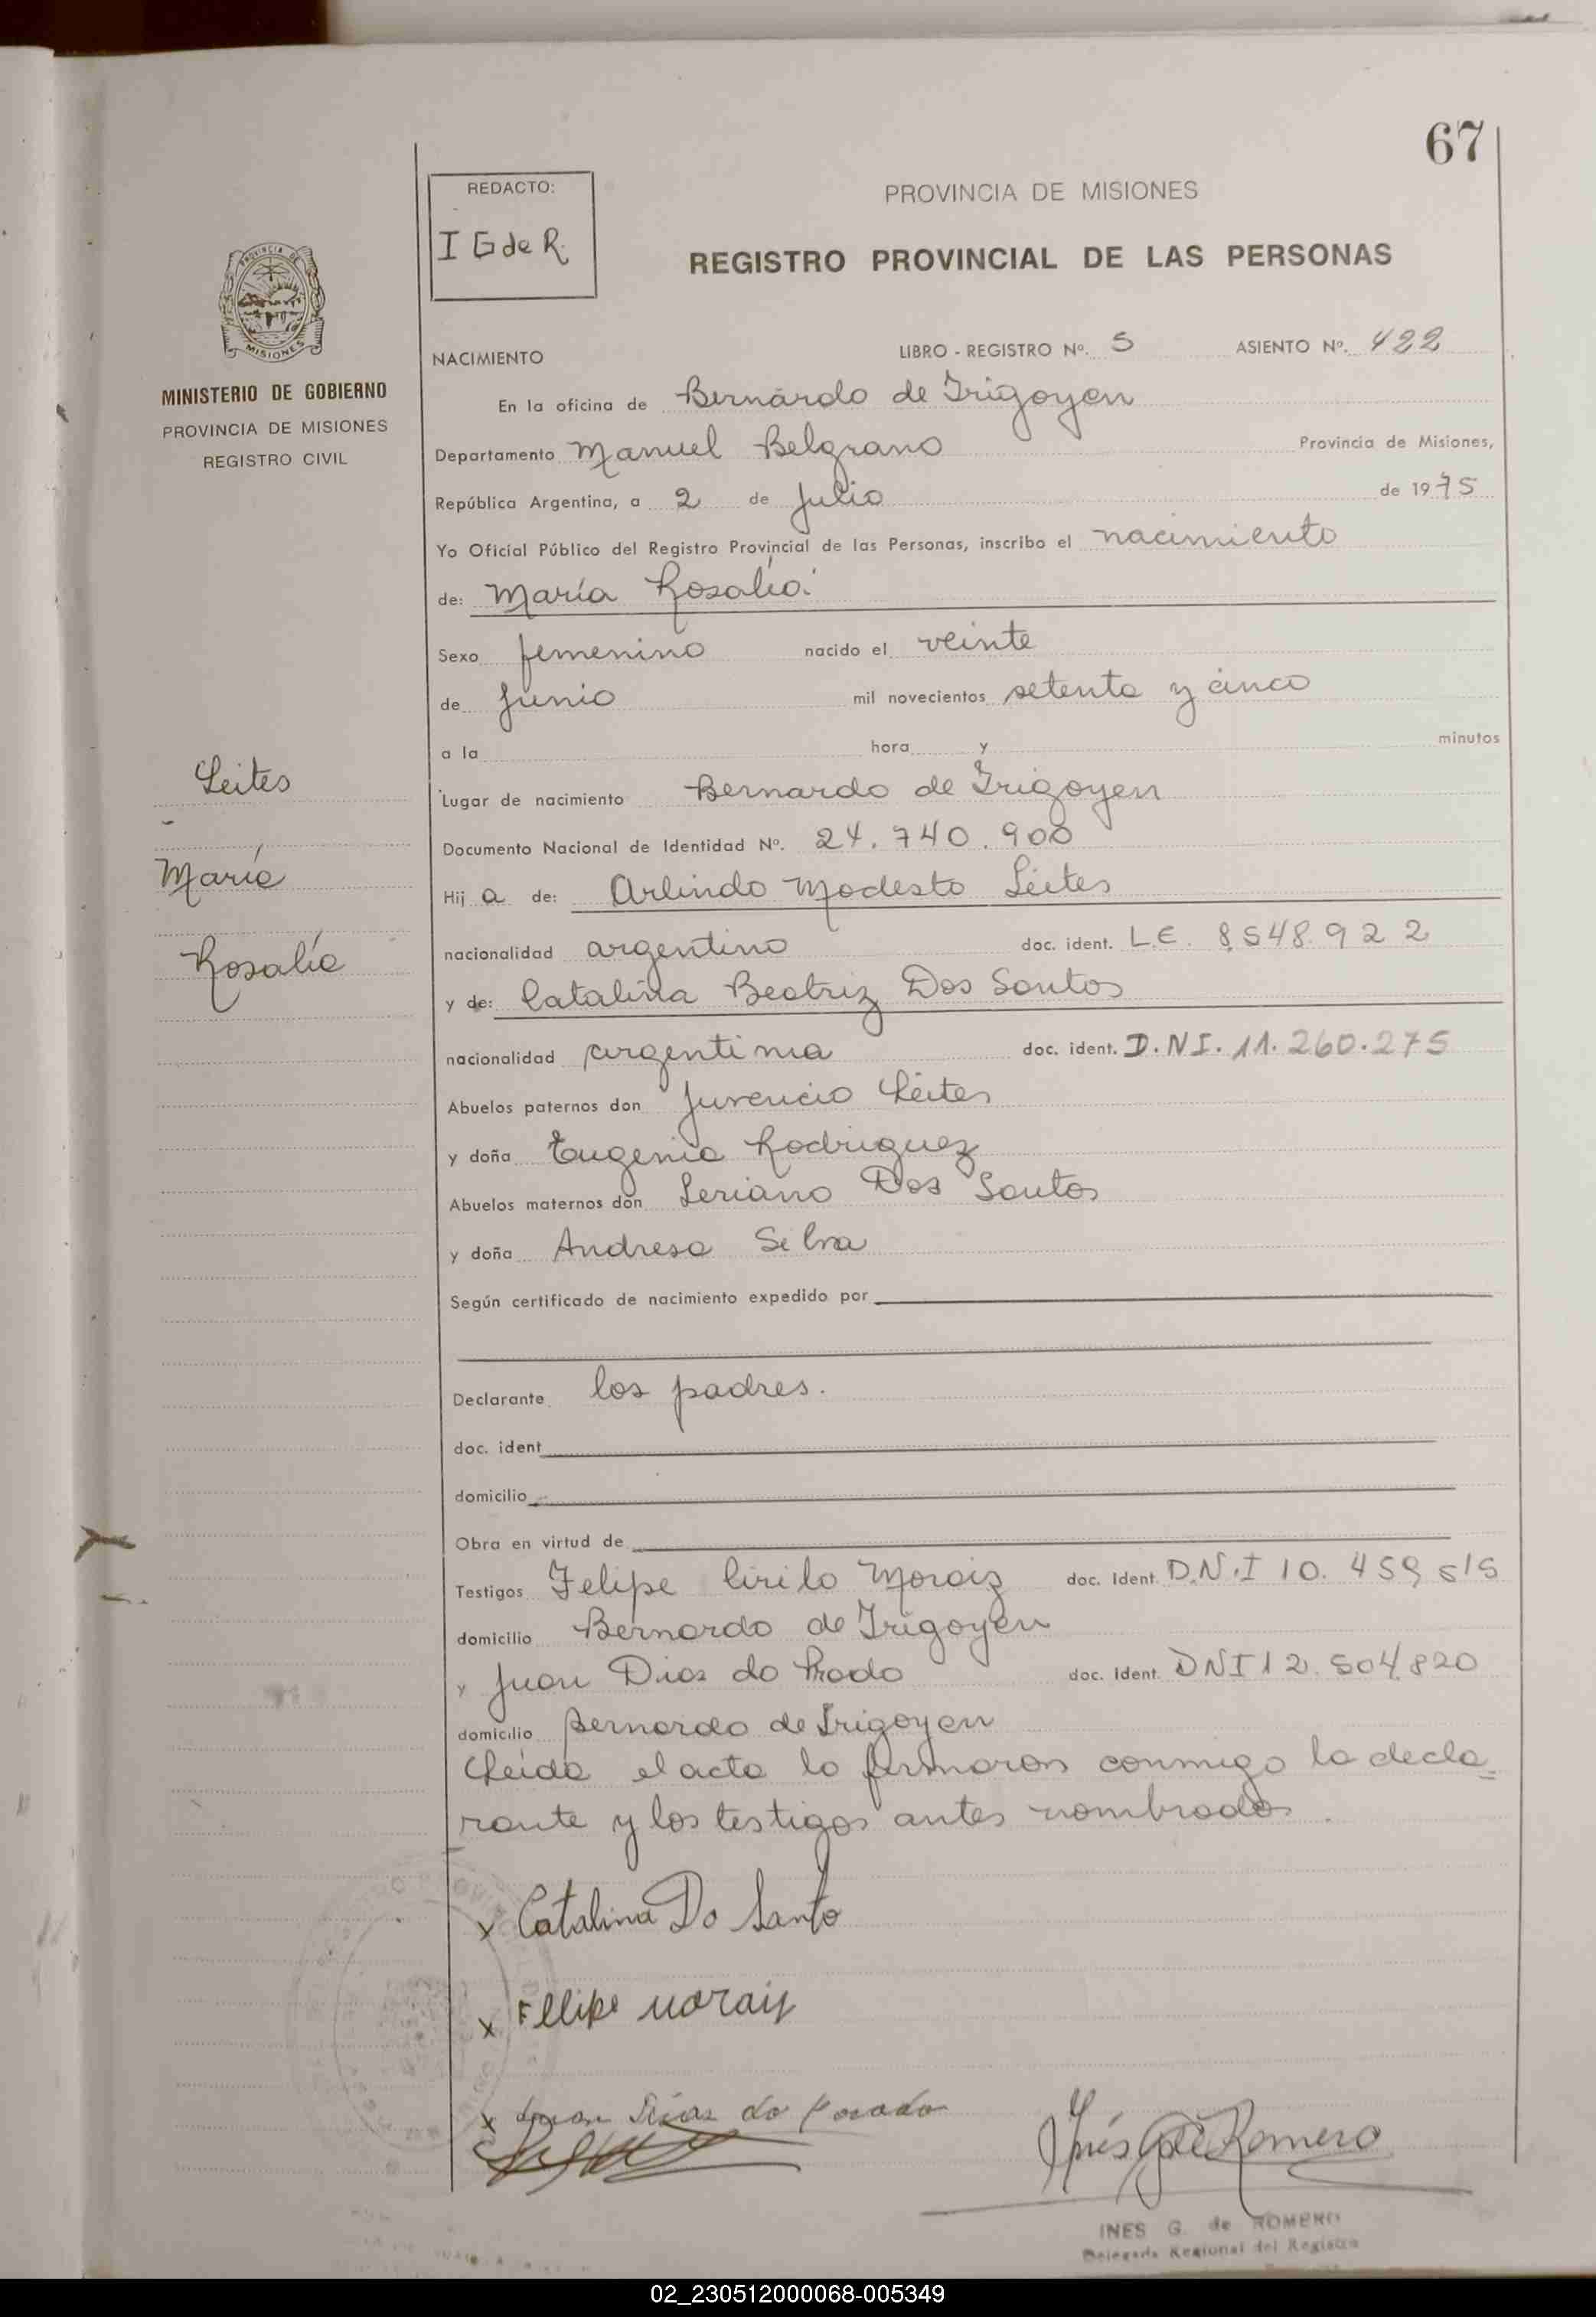 67
REDACTO:
I G de R.
PROVINCIA DE MISIONES
REGISTRO PROVINCIAL DE LAS PERSONAS
MISIONES
MINISTERIO DE GOBIERNO
PROVINCIA DE MISIONES
REGISTRO CIVIL
NACIMIENTO LIBRO - REGISTRO Nº. 5 ASIENTO Nº. 422
En la oficina de Bernardo de Irigoyen
Departamento Manuel Belgrano Provincia de Misiones,
República Argentina, a 2 de Julio de 1975
Yo Oficial Público del Registro Provincial de las Personas, inscribo el nacimiento
de: María Rosalía
Sexo femenino nacido el veinte
de Junio mil novecientos setenta y cinco
a la hora y minutos
Leites
María
Rosalía
Lugar de nacimiento Bernardo de Irigoyen
Documento Nacional de Identidad Nº. 24.740.900
Hij a de: Arlindo Modesto Leites
nacionalidad argentino doc. ident. L.E. 8.548.922
y de: Catalina Beatriz Dos Santos
nacionalidad argentina doc. ident. D.N.I. 11.260.275
Abuelos paternos don Juvencio Leites
y doña Eugenia Rodriguez
Abuelos maternos don Seriano Dos Santos
y doña Andresa Silva
Según certificado de nacimiento expedido por
Declarante los padres.
doc. ident
domicilio
Obra en virtud de
Testigos Felipe Cirilo Moraiz doc. Ident. D.N.I 10. 459 515
domicilio Bernardo de Irigoyen
y Juan Dias do Prado doc. Ident. DNI 12.504.820
domicilio Bernardo de Irigoyen
Leída el acta la firmaron conmigo la decla=
rante y los testigos antes nombrados.
x Catalina Do Santo
x Fllipe Morais
x Juan Dias do Prado
Inés G de Romero
INES G. de ROMERO
Delegada Regional del Registro
02_230512000068-005349